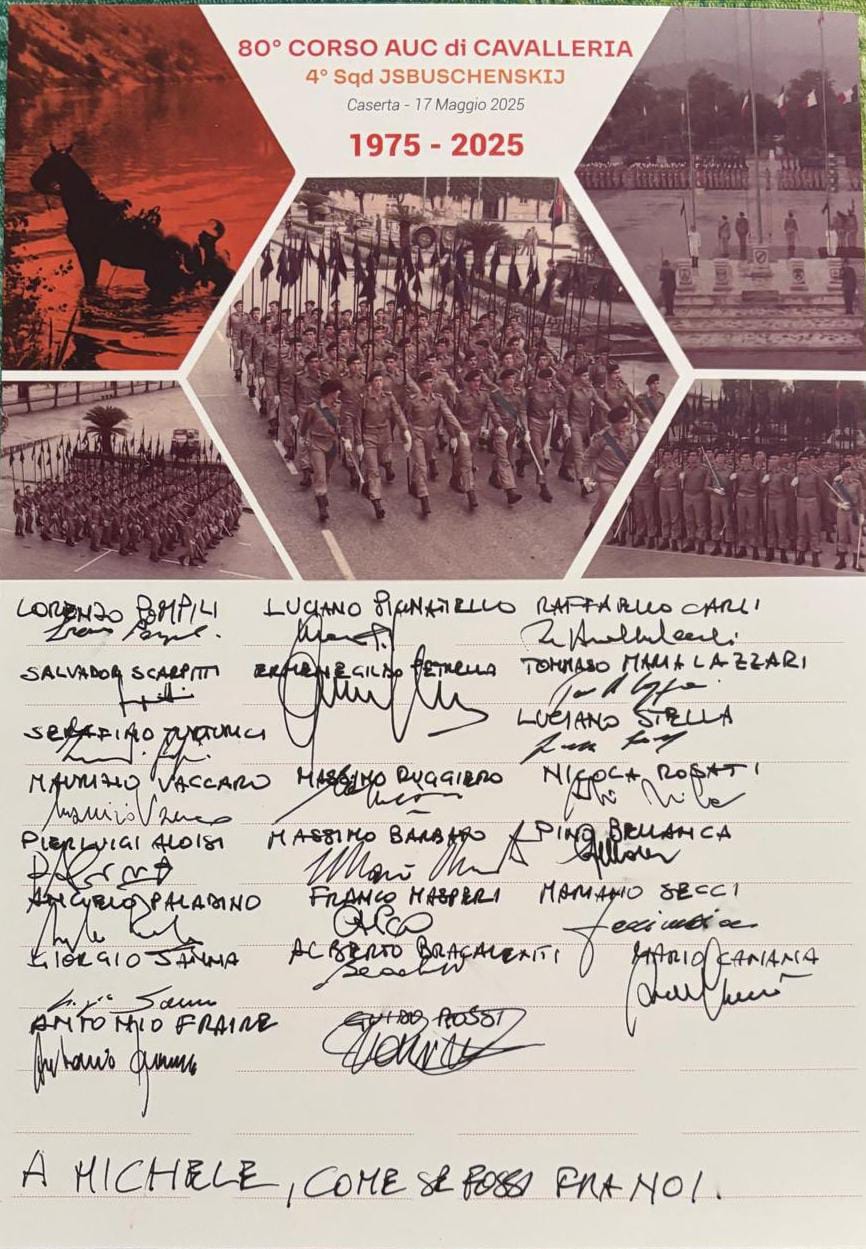 80° CORSO AUC di CAVALLERIA
4° Sqd JSBUSCHENSKIJ
Caserta - 17 Maggio 2025
1975 - 2025
LORENZO POMPILI LUCIANO PIGNATIELLO RAFFAELLO CARLI
SALVADOR SCARPITTI ERMENEGILDO PETRELLA TOMMASO MARIA LAZZARI
SERAFINO LUCIANO STELLA
MAURIZIO VACCARO MASSIMO RUGGIERO NICOLA ROSATI
PIERLUIGI ALOISI MASSIMO BARBATO PINO BELLANCA
ANGELO PALADINO FRANCO MASPERI MARIANO SECCI
GIORGIO SANNA ALBERTO BRACALENTI MARIO CANANÀ
ANTONIO FRAIRE GUIDO ROSSI
A MICHELE, COME SE FOSSI FRA NOI.